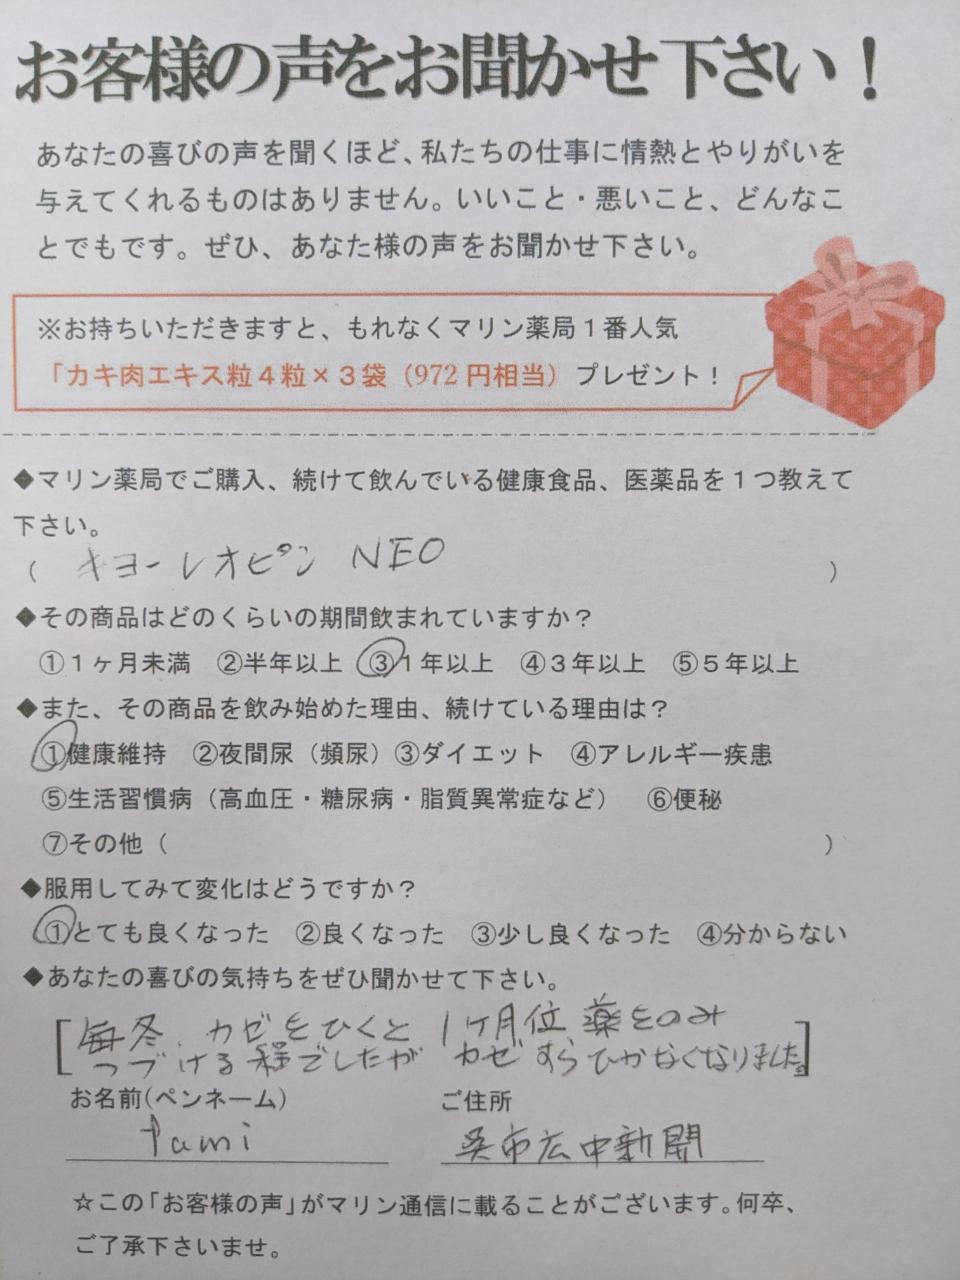 お客様の声をお聞かせ下さい！
あなたの喜びの声を聞くほど、私たちの仕事に情熱とやりがいを
与えてくれるものはありません。いいこと・悪いこと、どんなこ
とでもです。ぜひ、あなた様の声をお聞かせ下さい。
※お持ちいただきますと、もれなくマリン薬局１番人気
「カキ肉エキス粒４粒×３袋（972 円相当） プレゼント！
◆マリン薬局でご購入、続けて飲んでいる健康食品、医薬品を１つ教えて
下さい。
（ キヨーレオピン NEO ）
◆その商品はどのくらいの期間飲まれていますか？
①１ヶ月未満　②半年以上　③１年以上　④３年以上　⑤５年以上
◆また、その商品を飲み始めた理由、続けている理由は？
①健康維持　②夜間尿（頻尿）③ダイエット　④アレルギー疾患
⑤生活習慣病（高血圧・糖尿病・脂質異常症など）　⑥便秘
⑦その他（　　　）
◆服用してみて変化はどうですか？
①とても良くなった　②良くなった　③少し良くなった　④分からない
◆あなたの喜びの気持ちをぜひ聞かせて下さい。
[毎冬、カゼをひくと 1ヶ月位 薬をのみ
つづける程でしたが カゼすらひかなくなりました。]
お名前(ペンネーム)　ご住所
fami　呉市広中新開
☆この「お客様の声」がマリン通信に載ることがございます。何卒、
ご了承下さいませ。